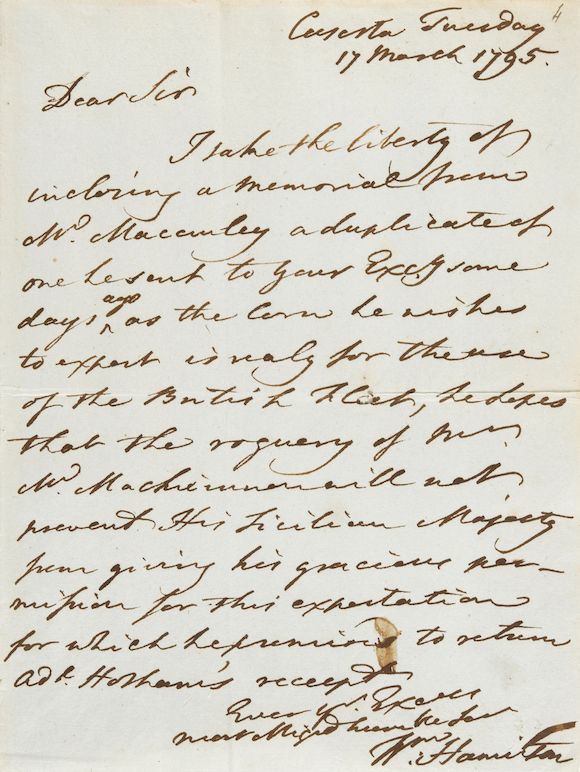 4
Caserta Tuesday
17 March 1795.
Dear Sir
I take the liberty of
inclosing a memorial from
Mr. Macauley a duplicate of
one he sent to Your Excy some
days ago as the Corn he wishes
to export is realy for the use
of the British Fleet, he hopes
that the roguery of Mr.
will not
prevent His Sicilian Majesty
from giving his gracious per-
mission for this exportation
for which he promises to return
Adl. Hotham's receipt
Ever yr. Excells
most obliged humble Ser
Wm. Hamilton